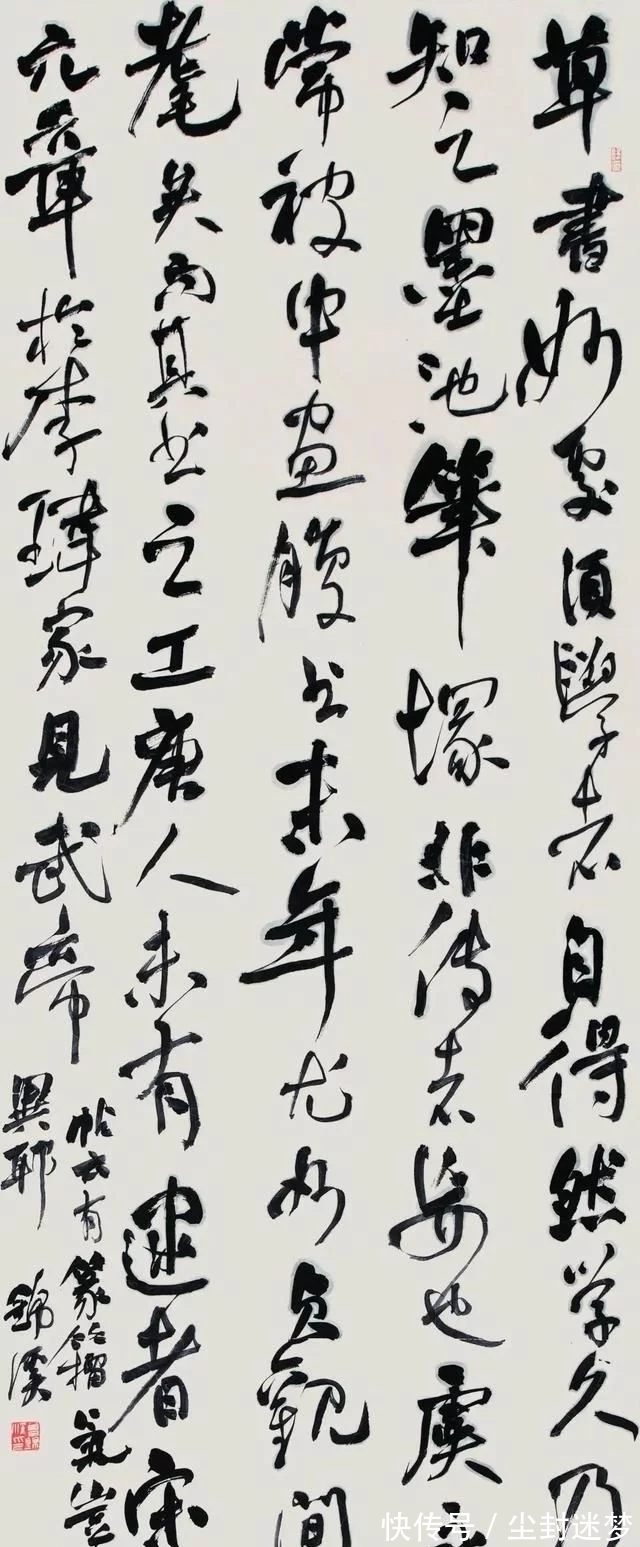 草書妙處須學者自得然學久乃
知之墨池筆塚非傳者妄也虞
常被中畫腹書末年尤妙貞觀間
耄矣而其書之工唐人未有逮者宋
元章於李瑋家見武帝
帖云有篆籀氣豈
異耶 錦溪
快传号/尘封迷梦